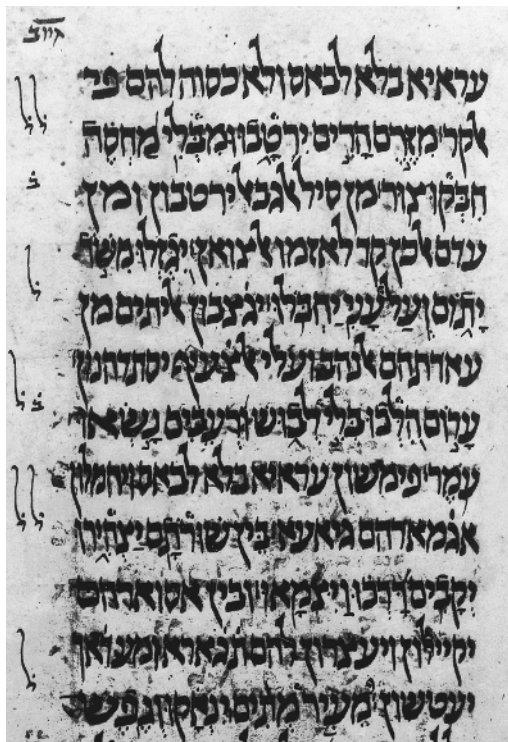 איוב
עראיא בלא לבאס ולא כסוה להם פי
אלקר׳ מִזֶּרֶם הָרִים יִרְטָבוּ וּמִבְּלִי מַחְסֶה
חִבְּקוּ צוּר׳ מן סיל אלגבאל ירטבון ומן
עדם אלכן קד לאזמו אלצואן׳ יִגְזְלוּ מִשֹּׁד
יָתוֹם וְעַל עָנִי יַחְבֹּלוּ׳ יגצבון אליתים מן
אלנהב ועלי אלצעיף יסתרהנון
עָרוֹם הִלְּכוּ בְּלִי לְבוּשׁ וּרְעֵבִים נָשְׂאוּ
עֹמֶר׳ פימשון עראיא בלא לבאס ויחמלון
אגמארהם גיאעא׳ בֵּין שׁוּרֹתָם יַצְהִירוּ
יְקָבִים דָּרְכוּ וַיִּצְמָאוּ׳ ובין אסוארהם
יקיילון ויעצרון להם
יעטשון׳ מֵעִיר מְתִים יִנְאָקוּ וְנֶפֶשׁ